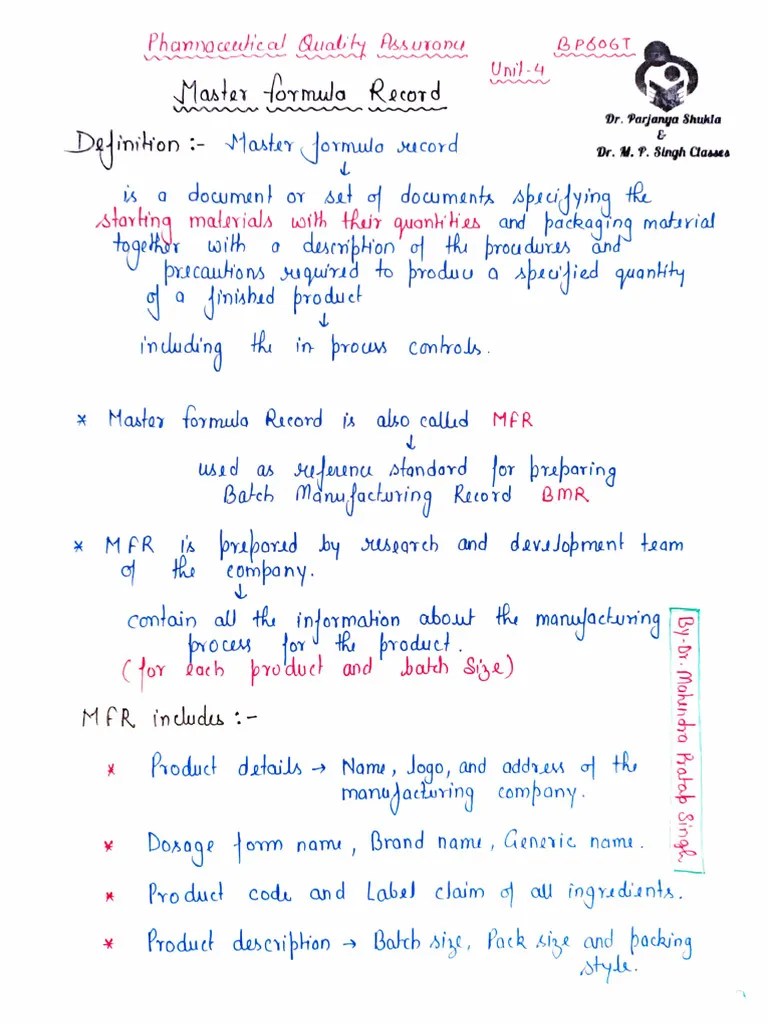 Pharmaceutical Quality Assurance BP606T
Unit-4
Master formula Record
Dr. Parjanya Shukla
&
Dr. M. P. Singh Classes
Definition :- Master formula record
↓
is a document or set of documents specifying the
starting materials with their quantities and packaging material
together with a description of the procedures and
precautions required to produce a specified quantity
of a finished product
↓
including the in process controls.
* Master formula Record is also called MFR
↓
used as reference standard for preparing
Batch Manufacturing Record BMR
* MFR is prepared by research and development team
of the company.
↓
contain all the information about the manufacturing
process for the product.
(for each product and batch size)
MFR includes :-
* Product details → Name, logo, and address of the
manufacturing company.
* Dosage form name, Brand name, Generic name.
* Product code and Label claim of all ingredients.
* Product description → Batch size, Pack size and packing
style.
By- Dr. Mahendra Pratap Singh